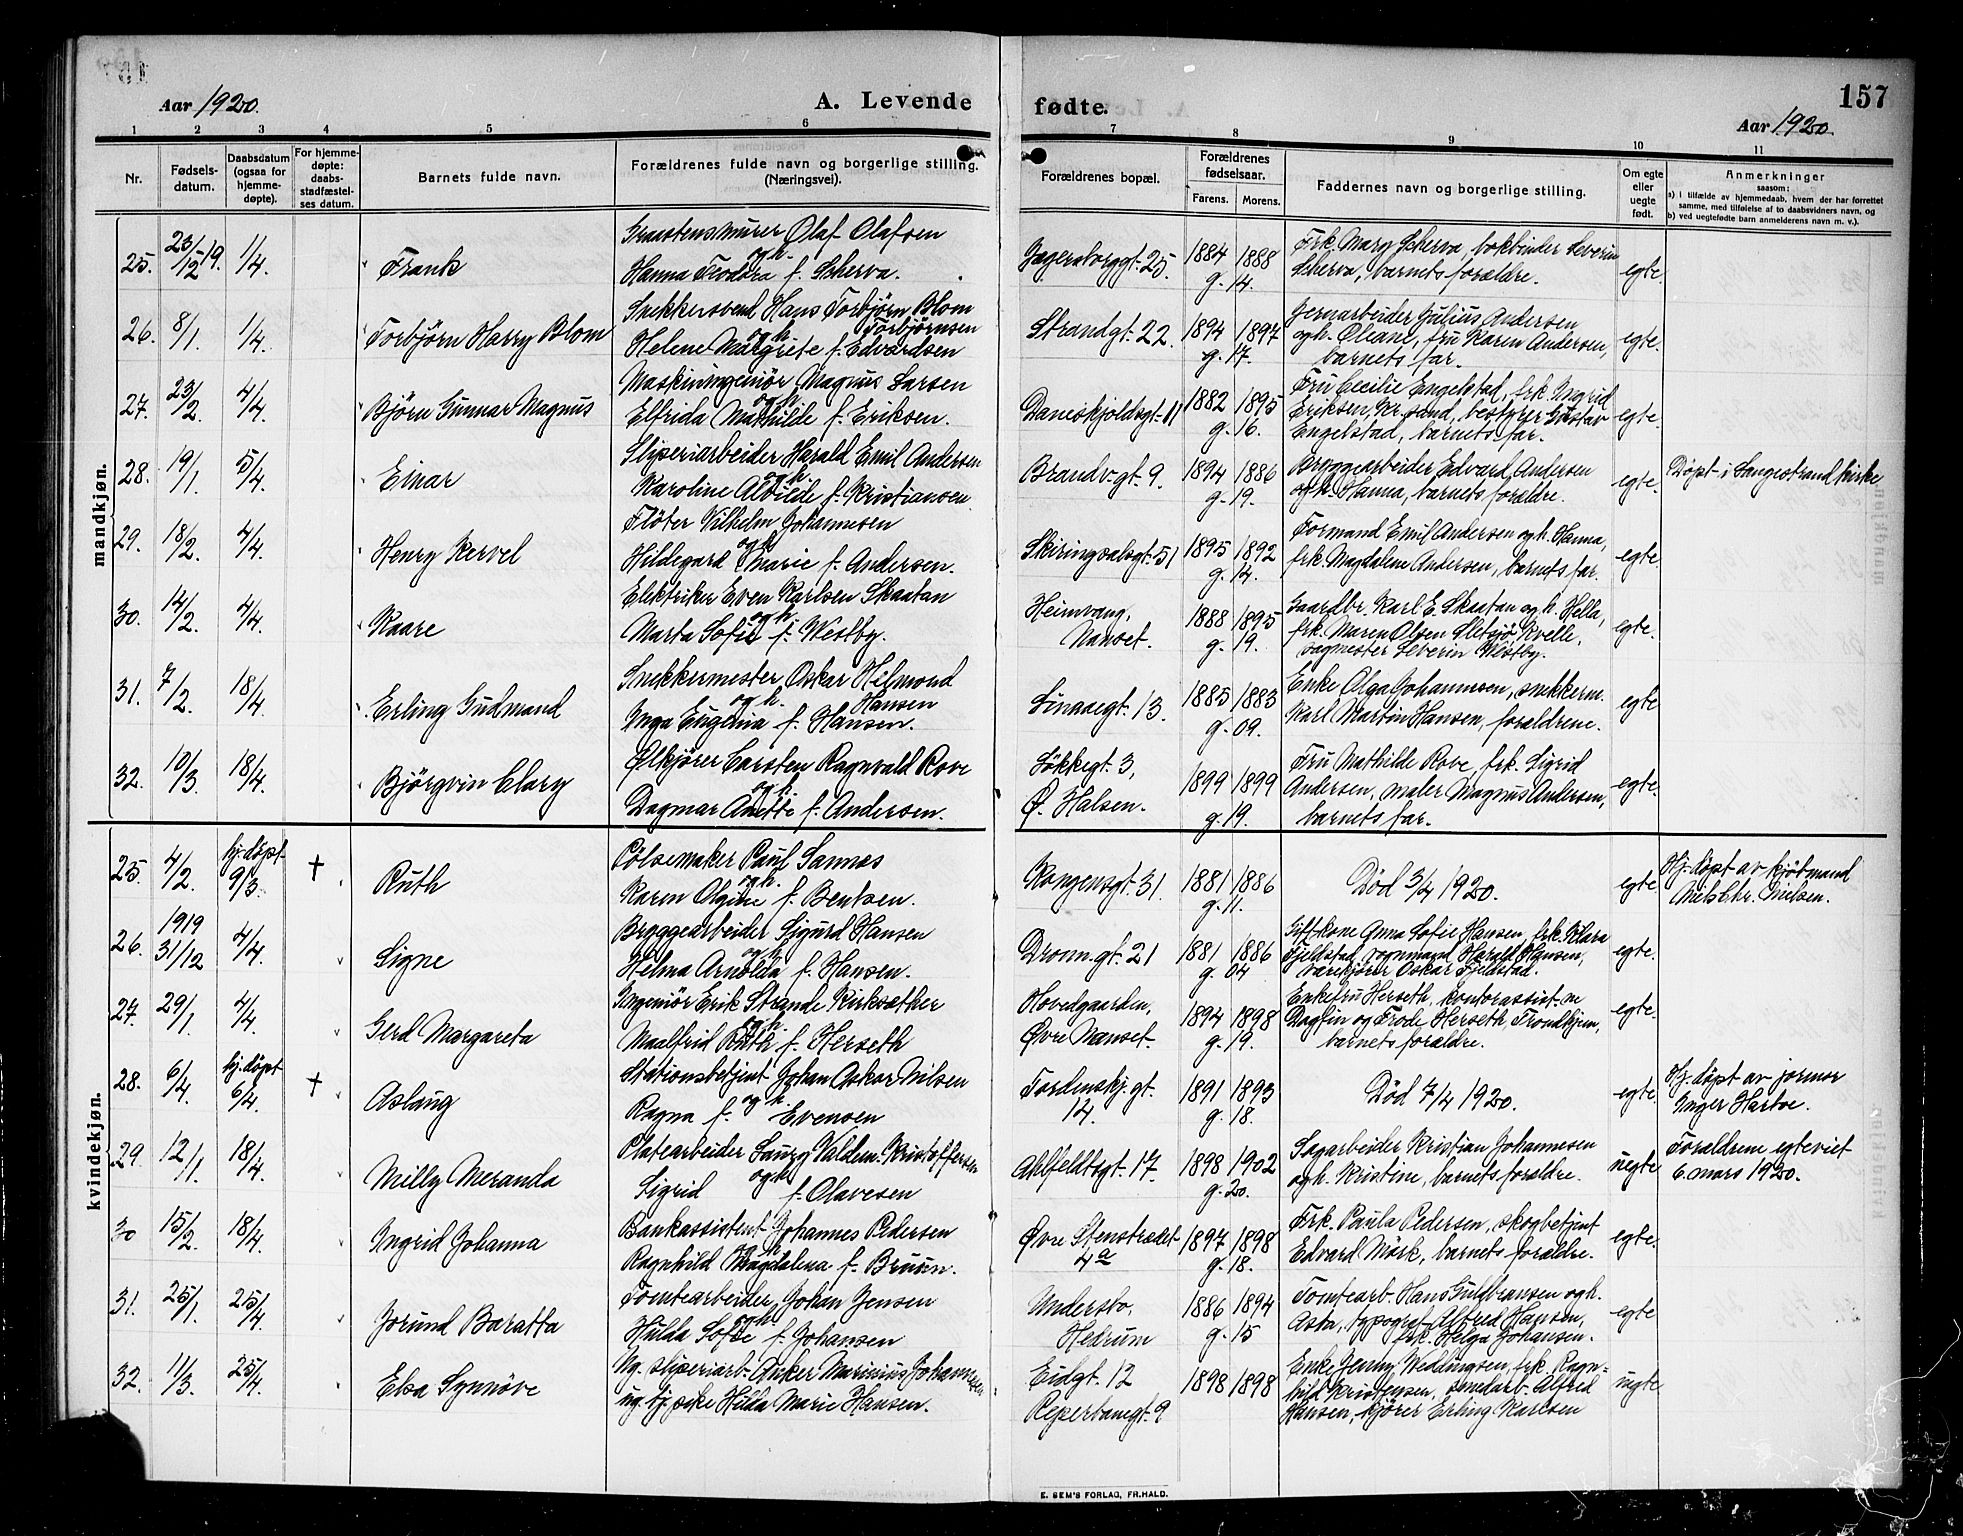 Aar 1920. A. Levende fødte. 157
Aar 1920.
1 2 3 4 5 6 7 8 9 10 11
Nr. Fødsels-datum. Daabsdatum (ogsaa for hjemme-døpte). For hjemme-døpte: daabs-stadfæstel-ses datum. Barnets fulde navn. Forældrenes fulde navn og borgerlige stilling. (Næringsvei). Forældrenes bopæl. Forældrenes fødselsaar. Farens. Morens. Faddernes navn og borgerlige stilling. Om egte eller uegte født. Anmerkninger saasom: a) i tilfælde av hjemmedaab, hvem der har forrettet samme, med tilføielse af to daabsvidners navn, og b) ved uegtefødte barn anmelderens navn m. v.).
mandkjøn.
25. 23/12 19. 1/4. Frank
Graastensmurer Olaf Olafsen
og h.
Hanna Teodora f. Scherva.
Jegersborggt. 25. 1884 1888 g. 14.
Frk. Mary Scherva, bokbinder Severin
Scherva, barnets forældre.
egte.
26. 8/1. 1/4. Torbjørn Harry Blom
Snekkersvend Hans Torbjørn Blom
og h. Torbjørnsen
Helene Margrete f. Edvardsen
Strandgt. 22. 1894 1897 g. 17.
Jernarbeider Julius Andersen
og h. Oleane, fru Karen Andersen,
barnets far.
egte.
27. 23/2. 4/4. Bjørn Gunnar Magnus
Maskiningeniør Magnus Larsen
og h.
Elfrida Mathilde f. Eriksen.
Daneskjoldsgt. 11 1882 1895 g. 16.
Fru Cecilie Engelstad, frk. Ingrid
Eriksen, Kr.sand, bestyrer Gustav
Engelstad, barnets far.
egte.
28. 19/1. 5/4. Einar
Sliperiarbeider Harald Emil Andersen
og h.
Karoline Alvilde f. Kristiansen
Brandv. gt. 9. 1894 1886 g. 19.
Bryggearbeider Edvard Andersen
og h. Hanna, barnets forældre.
egte.
Døpt i Langestrand kirke
29. 18/2. 4/4. Henry Kervel
Fløter Vilhelm Johannesen
og h
Hildegard Marie f. Andersen.
Skiringsalsgt. 51 1895 1892 g. 14.
Formand Emil Andersen og h. Hanna,
frk. Magdalene Andersen, barnets far.
egte.
30. 14/2. 4/4. Kaare
Elektriker Even Karlsen Skaatan
og h.
Marta Sofie f. Westby.
Heimvang,
Nanset. 1888 1895 g. 19.
Gaardbr. Karl E. Skaatan og h. Hella,
frk. Maren Olsen Sletsjø Kvelle,
vognmester Severin Westby.
egte.
31. 7/2. 18/4. Erling Gudmand
Snekkermester Oskar Helmond
og h. Hansen
Inga Eugenia f. Hansen.
Linaaegt. 13. 1885 1883 g. 09.
Enke Olga Johannesen, snekkerm.
Karl Martin Hansen, forældrene.
egte
32. 10/3. 18/4. Bjørgvin Clary
Ølkjører Carsten Ragnvald Rove
og h.
Dagmar Anette f. Andersen.
Løkkegt. 3,
Ø. Halsen. 1899 1899 g. 19.
Fru Mathilde Rove, frk. Sigrid
Andersen, maler Magnus Andersen,
barnets far.
egte.
kvindekjøn.
25. 4/2. hj. døpt 9/3. † Ruth
Pølsemaker Paul Sannes
og h.
Karen Olgine f. Bentsen.
Kongensgt. 31. 1881 1886 g. 11.
Død 3/4 1920.
egte
Hj. døpt av kjøbmand
Niels Chr. Nielsen.
26. 1919 31/12 4/4. Signe
Bryggearbeider Sigurd Hansen
og h.
Helma Arnolda f. Hansen.
Dronn.gt. 21 1881 1886 g. 04
Giftkone Anna Sofie Hansen, frk. Klara
Fjeldstad, vognmand Harald Hansen,
varekjører Oskar Fjeldstad.
egte.
27. 29/1. 4/4. Gerd Margareta
Ingeniør Erik Strande Kirksæther
og h.
Maalfrid Ruth f. Herseth
Hovedgaarden,
Øvre Nanset. 1894 1898 g. 19.
Enkefru Herseth, kontorassist. ne
Dagfin og Frode Herseth, Trondhjem,
barnets forældre.
egte.
28. 6/4. hj. døpt 6/4. † Aslaug
Stationsbetjent Johan Oskar Nilsen
og h.
Ragna f. Evensen
Tordenskj. gt.
14. 1891 1893 g. 18.
Død 7/4 1920.
egte.
Hj. døpt av jormor
Inger Hartve.
29. 12/1. 18/4. Milly Meranda
Platearbeider Laury Valdem. Kristoffersen
og h
Sigrid f. Olavesen
Ahlfeldtsgt. 17. 1898 1902 g. 20.
Sagarbeider Kristian Johannesen
og h. Kristine, barnets forældre.
uegte
Forældrene egteviet
6. mars 1920.
30 15/2. 18/4. Ingrid Johanna
Bankassistent Johannes Pedersen
og h.
Ragnhild Magdalena f. Bruun.
Øvre Stenstrædet
4a 1897 1898 g. 18.
Frk. Paula Pedersen, skogbetjent
Edvard Mørk, barnets forældre.
egte.
31. 25/1. 25/4. Jorund Baratta
Tomtearbeider Johan Jensen
og h.
Hulda Sofie f. Johansen
Undersbo,
Hedrum 1886 1894 g. 15
Tomtearb. Hans Gulbransen og h.
Asta, typograf Alfred Hansen,
frk. Helga Johansen.
egte
32. 11/3. 25/4. Elsa Synnøve
Ug. sliperiarb. Anker Marinius Johannesen
ug. tj. pike Hilda Marie Hansen.
Eidgt. 12
Reperbanegt. 9 1898 1898
Enke Jenny Weddingsen, frk. Ragn-
hild Kristensen, smedarb. Alfred
Hansen, kjører Erling Karlsen
uegte
E. SEM'S FORLAG, FR.HALD.